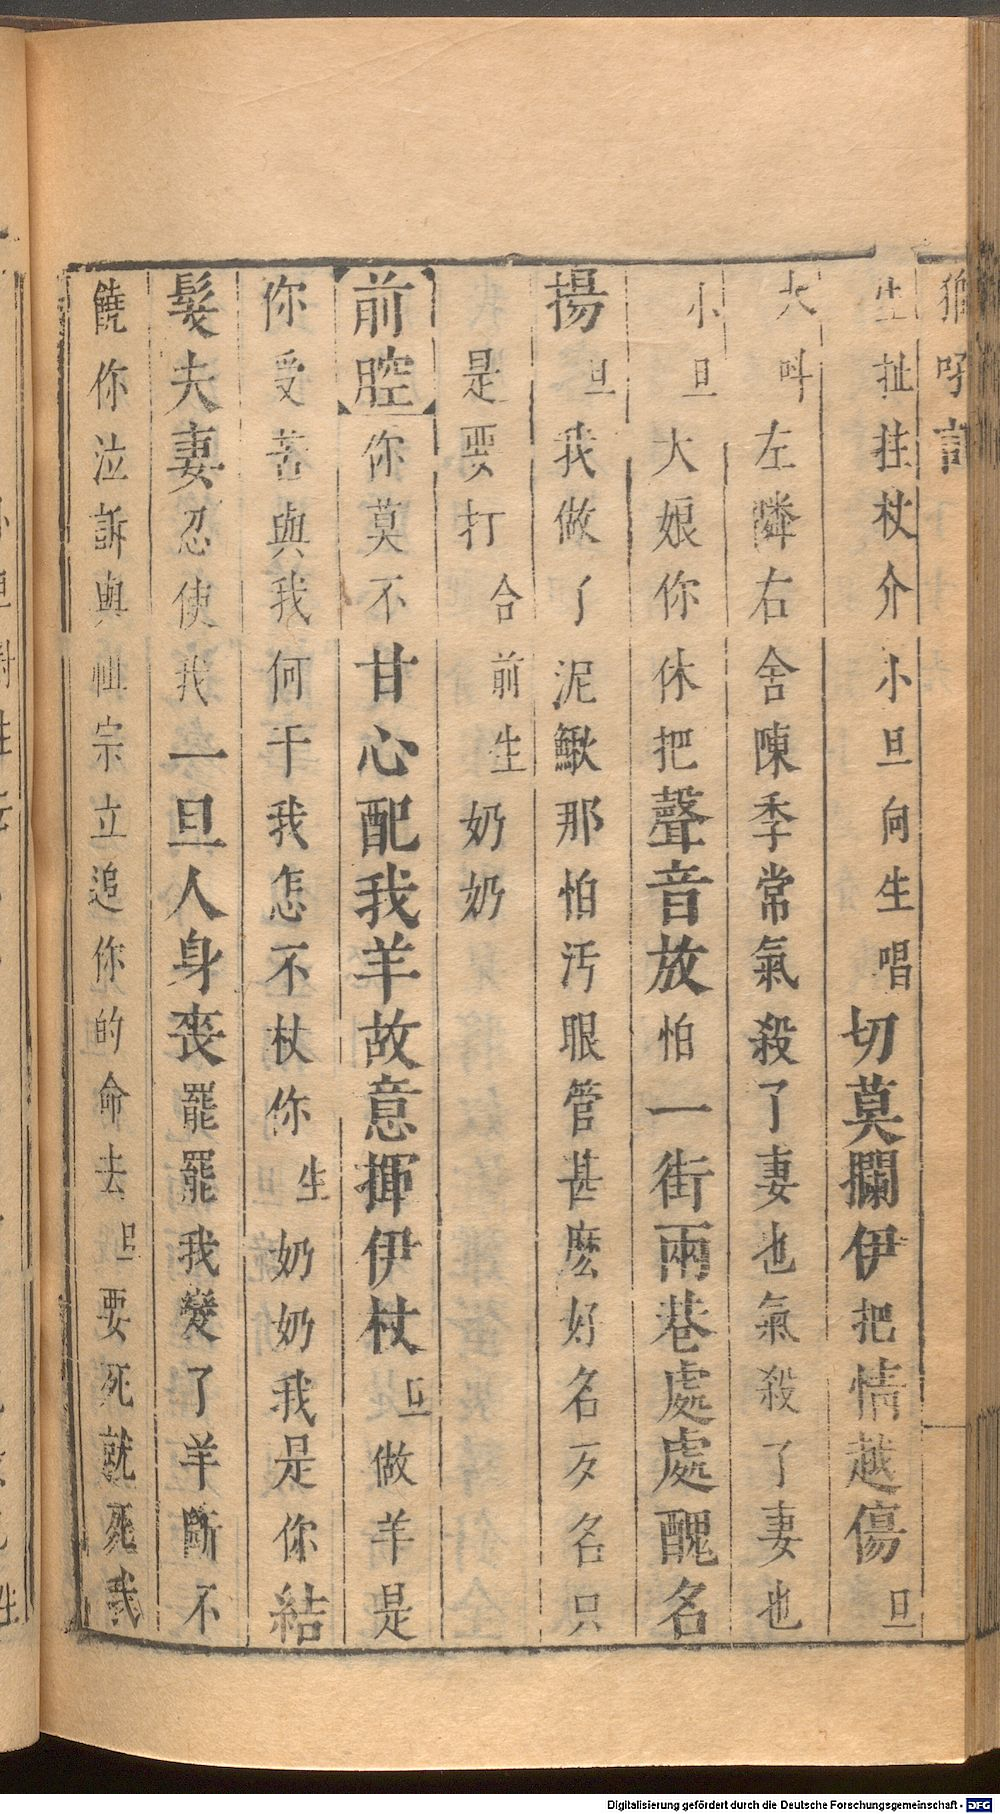 獅吼記
生扯拄杖介小旦向生唱切莫攔伊把情越傷旦
大呌左隣右舍陳季常氣殺了妻也氣殺了妻也
小旦大娘你休把聲音放怕一街兩巷處處醜名
揚旦我做了泥鰍那怕汚眼管甚麽好名歹名只
是要打合前生奶奶
前腔你莫不甘心配我羊故意揮伊杖旦做羊是
你受苦與我何干我怎不杖你生奶奶我是你結
髮夫妻忍使我一旦人身喪罷罷我變了羊斷不
饒你泣訴與祖宗立追你的命去旦要死就死我
Digitalisierung gefördert durch die Deutsche Forschungsgemeinschaft - DFG